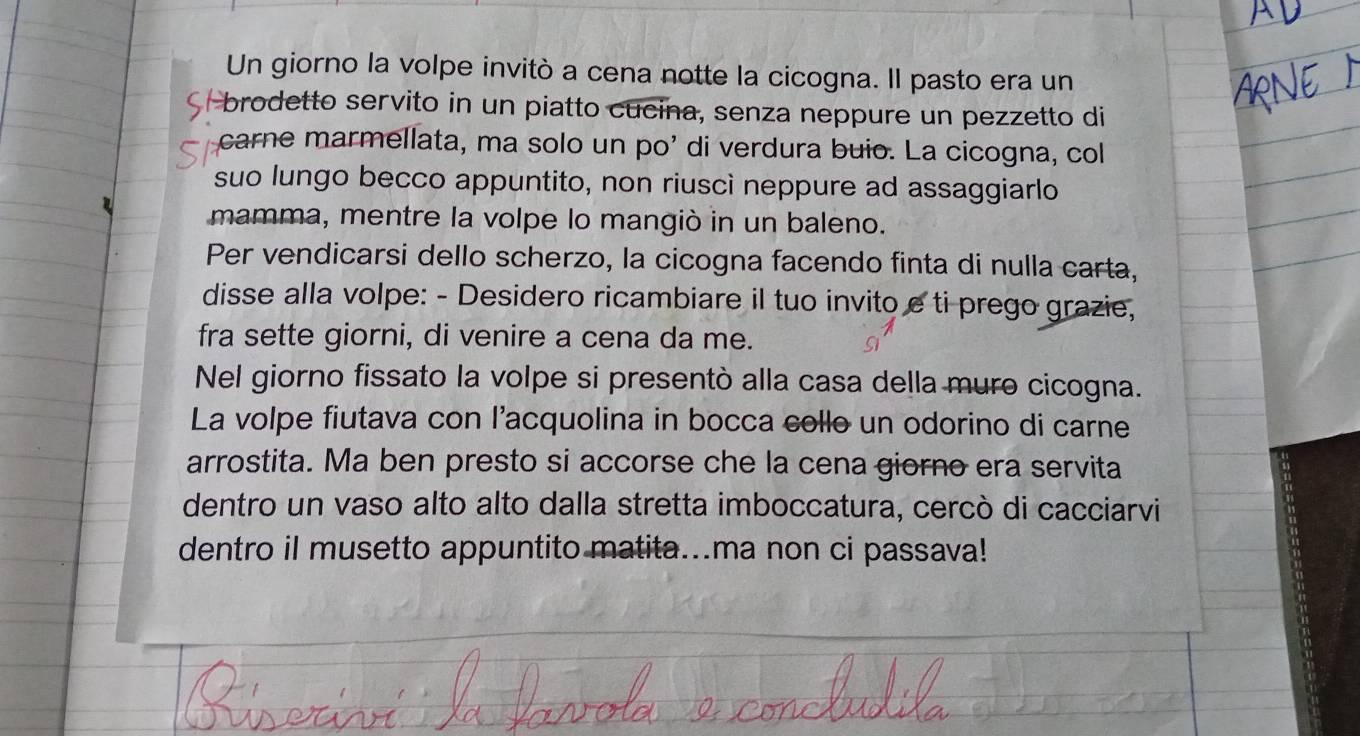 AD
Un giorno la volpe invitò a cena notte la cicogna. Il pasto era un
ARNE
SI brodetto servito in un piatto cucina, senza neppure un pezzetto di
SI carne marmellata, ma solo un po' di verdura buio. La cicogna, col
suo lungo becco appuntito, non riuscì neppure ad assaggiarlo
mamma, mentre la volpe lo mangiò in un baleno.
Per vendicarsi dello scherzo, la cicogna facendo finta di nulla carta,
disse alla volpe: - Desidero ricambiare il tuo invito e ti prego grazie,
fra sette giorni, di venire a cena da me.
SI
Nel giorno fissato la volpe si presentò alla casa della muro cicogna.
La volpe fiutava con l'acquolina in bocca collo un odorino di carne
arrostita. Ma ben presto si accorse che la cena giorno era servita
dentro un vaso alto alto dalla stretta imboccatura, cercò di cacciarvi
dentro il musetto appuntito matita...ma non ci passava!
Riscrivi la favola e concludila